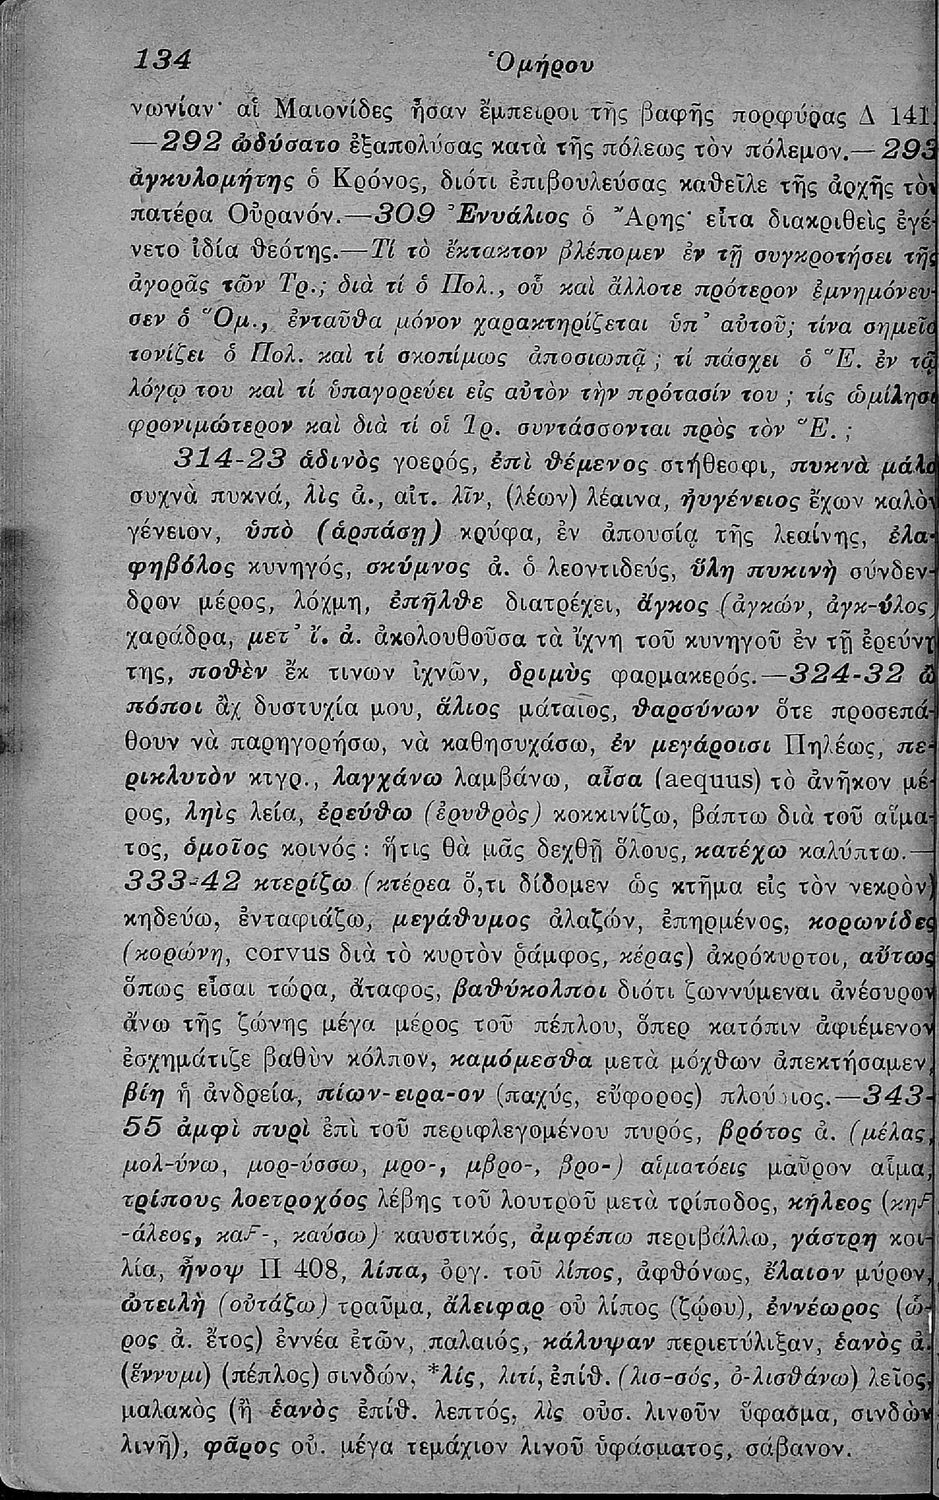 134 Ὁμήρου
νωνίαν· αἱ Μαιονίδες ἦσαν ἔμπειροι τῆς βαφῆς πορφύρας Δ 141.
—292 ὠδύσατο ἐξαπολύσας κατὰ τῆς πόλεως τὸν πόλεμον.—293
ἀγκυλομήτης ὁ Κρόνος, διότι ἐπιβουλεύσας καθεῖλε τῆς ἀρχῆς τὸν
πατέρα Οὐρανόν.—309 Ἐνυάλιος ὁ Ἄρης· εἶτα διακριθεὶς ἐγέ-
νετο ἰδία θεότης.—Τί τὸ ἔκτακτον βλέπομεν ἐν τῇ συγκροτήσει τῆς
ἀγορᾶς τῶν Τρ.; διὰ τί ὁ Πολ., οὗ καὶ ἄλλοτε πρότερον ἐμνημόνευ-
σεν ὁ Ὅμ., ἐνταῦθα μόνον χαρακτηρίζεται ὑπ’ αὐτοῦ; τίνα σημεῖα
τονίζει ὁ Πολ. καὶ τί σκοπίμως ἀποσιωπᾷ; τί πάσχει ὁ Ἕ. ἐν τῷ
λόγῳ του καὶ τί ὑπαγορεύει εἰς αὐτὸν τὴν πρότασίν του; τίς ὡμίλησε
φρονιμώτερον καὶ διὰ τί οἱ Τρ. συντάσσονται πρὸς τὸν Ἕ.;
314-23 ἁδινὸς γοερός, ἐπὶ θέμενος στήθεσφι, πυκνὰ μάλα
συχνὰ πυκνά, λὶς ἀ., αἰτ. λῖν, (λέων) λέαινα, ἠυγένειος ἔχων καλὸν
γένειον, ὑπὸ (ἁρπάσῃ) κρύφα, ἐν ἀπουσίᾳ τῆς λεαίνης, ἐλα-
φηβόλος κυνηγός, σκύμνος ἀ. ὁ λεοντιδεύς, ὕλη πυκινὴ σύνδεν-
δρον μέρος, λόχμη, ἐπῆλθε διατρέχει, ἄγκος (ἀγκών, ἀγκ-ύλος)
χαράδρα, μετ’ ἴ. ἀ. ἀκολουθοῦσα τὰ ἴχνη τοῦ κυνηγοῦ ἐν τῇ ἐρεύνῃ
της, ποθὲν ἔκ τινων ἰχνῶν, δριμὺς φαρμακερός.—324-32 ὢ
πόποι ἂχ δυστυχία μου, ἅλιος μάταιος, θαρσύνων ὅτε προσεπά-
θουν νὰ παρηγορήσω, νὰ καθησυχάσω, ἐν μεγάροισι Πηλέως, πε-
ρικλυτὸν κτγρ., λαγχάνω λαμβάνω, αἶσα (aequus) τὸ ἀνῆκον μέ-
ρος, ληὶς λεία, ἐρεύθω (ἐρυθρὸς) κοκκινίζω, βάπτω διὰ τοῦ αἵμα-
τος, ὁμοῖος κοινός: ἥτις θὰ μᾶς δεχθῇ ὅλους, κατέχω καλύπτω.—
333-42 κτερίζω (κτέρεα ὅ,τι δίδομεν ὡς κτῆμα εἰς τὸν νεκρὸν)
κηδεύω, ἐνταφιάζω, μεγάθυμος ἀλαζών, ἐπηρμένος, κορωνίδες
(κορώνη, corvus διὰ τὸ κυρτὸν ῥάμφος, κέρας) ἀκρόκυρτοι, αὔτως
ὅπως εἶσαι τώρα, ἄταφος, βαθύκολποι διότι ζωννύμεναι ἀνέσυρον
ἄνω τῆς ζώνης μέγα μέρος τοῦ πέπλου, ὅπερ κατόπιν ἀφιέμενον
ἐσχημάτιζε βαθὺν κόλπον, καμόμεσθα μετὰ μόχθων ἀπεκτήσαμεν,
βίη ἡ ἀνδρεία, πίων-ειρα-ον (παχύς, εὔφορος) πλούσιος.—343-
55 ἀμφὶ πυρὶ ἐπὶ τοῦ περιφλεγομένου πυρός, βρότος ἀ. (μέλας,
μολ-ύνω, μορ-ύσσω, μρο-, μβρο-, βρο-) αἱματόεις μαῦρον αἷμα,
τρίπους λοετροχόος λέβης τοῦ λουτροῦ μετὰ τρίποδος, κήλεος (κηϜ
-άλεος, καϜ-, καύσω) καυστικός, ἀμφέπω περιβάλλω, γάστρη κοι-
λία, ἦνοψ Π 408, λίπα, ὀργ. τοῦ λίπος, ἀφθόνως, ἔλαιον μύρον,
ὠτειλὴ (οὐτάζω) τραῦμα, ἄλειφαρ οὐ λίπος (ζῴου), ἐννέωρος (ὦ-
ρος ἀ. ἔτος) ἐννέα ἐτῶν, παλαιός, κάλυψαν περιετύλιξαν, ἑανὸς ἀ.
(ἕννυμι) (πέπλος) σινδών, *λίς, λιτί, ἐπίθ. (λισ-σός, ὀ-λισθάνω) λεῖος,
μαλακὸς (ἢ ἑανὸς ἐπίθ. λεπτός, λὶς οὐσ. λινοῦν ὕφασμα, σινδὼν
λινῆ), φᾶρος οὐ. μέγα τεμάχιον λινοῦ ὑφάσματος, σάβανον.